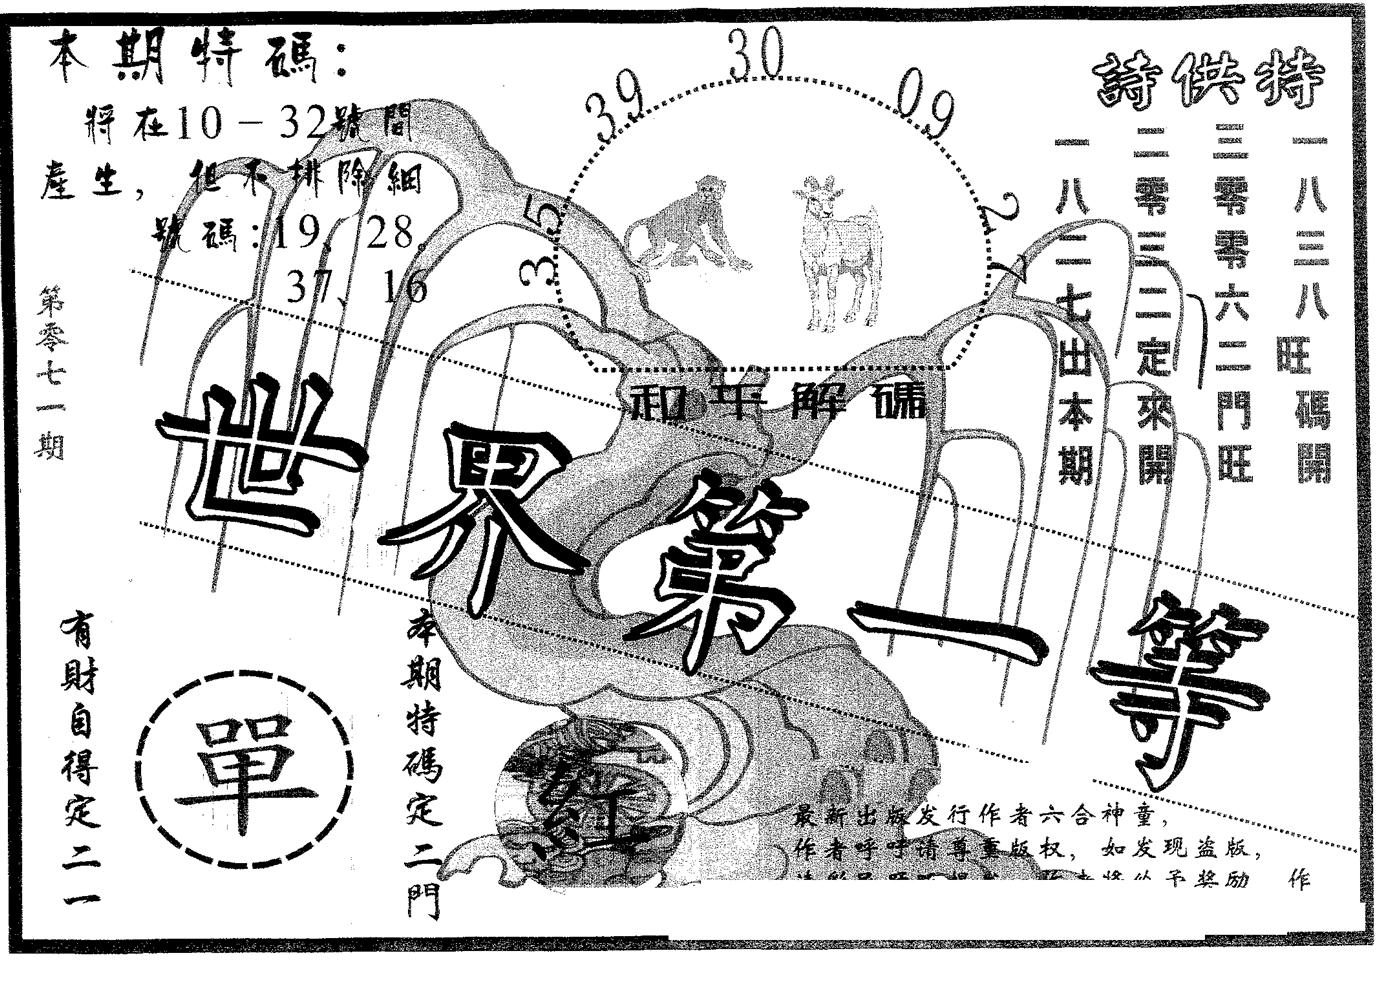 本期特碼：
將在10－32號間
產生，但不排除細
號碼：19、28。
37、16
第零七一期
39
30
09
35
27
特供詩
一八三八旺碼開
三零零六二門旺
二零三二定來開
一八二七出本期
和平解碼
世界第一等
有財自得定二一
單
本期特碼定二門
紅
最新出版发行作者六合神童，
作者呼吁请尊重版权，如发现盗版，
作